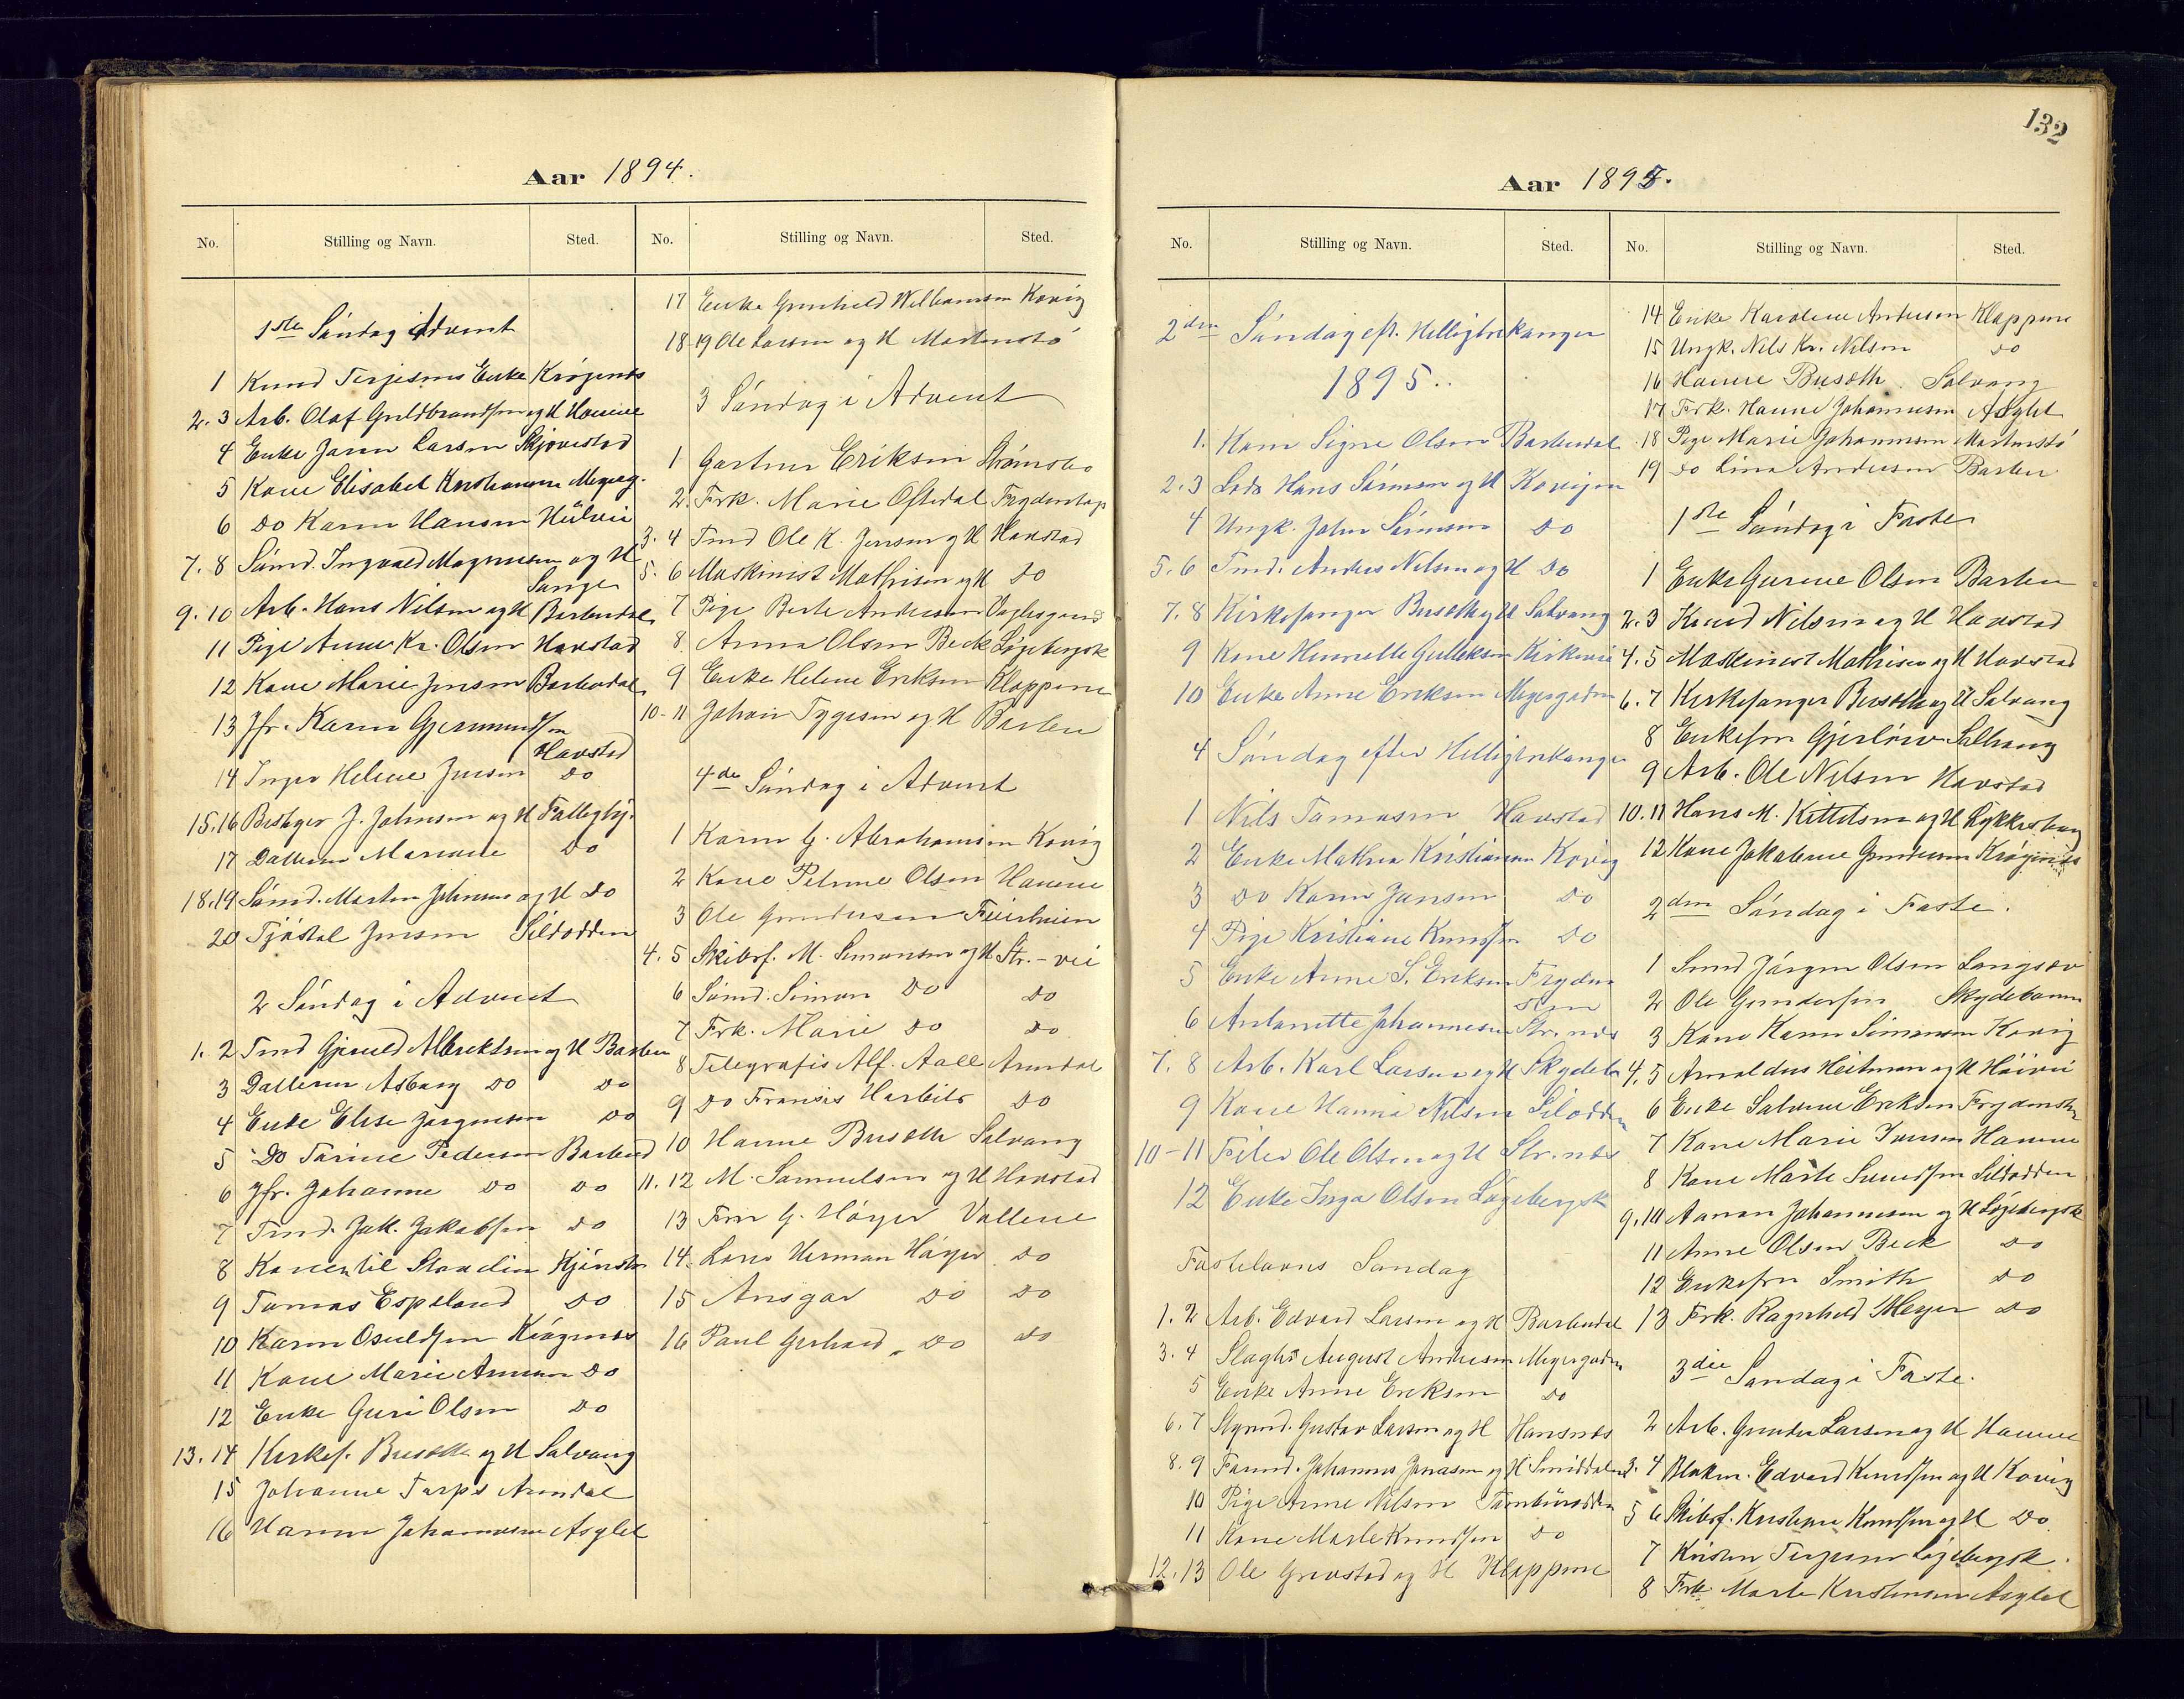 132
Aar 1894.
No. Stilling og Navn. Sted.
1ste Søndag i Advent
1 Knud Terjesens Enke Krøgenes
2. 3 Arb. Olaf Guldbrandsen og H Havene
4 Enke Jaran Larsen Skjøvestad
5 Kone Elisabet Kristiansen
6 Do Karen Hansen
7. 8 Sømd. Ingvald Magnussen og H
Songe
9. 10 Arb. Hans Nilsen og H Barbudal
11 Pige Anne Kr. Olsen Havstad
12 Kone Marie Jensen Barbudal
13 Jfr. Karen Gjermundsen
Havstad
14 Inger Helene Jensen Do
15. 16 J. Johnsen og H
17 Datteren Mariane Do
18. 19 Sømd. Morten Johnsen og H Do
20 Tjøstol Jensen Sildodden
2 Søndag i Advent
1. 2 Tmd Gjeruld Albrektsen og H Barbu
3 Datteren Asborg Do Do
4 Enke Elise Jørgensen Do
5 Do Tarine Pedersen Barbud
6 Jfr. Johanne Do Do
7 Tmd. Jak. Jakobsen Do
8 Konen til
9 Tomas Espeland Do
10 Karen Osuldsen Krøgenes
11 Kone Marie Do
12 Enke Guri Olsen Do
13. 14 Kirkes. Buseth og H Solvang
15 Johanne Torps Arendal
16 Hanne Johannesen Asylet
No. Stilling og Navn. Sted.
17 Enke Gunhild Williamsen Kovig
18-19 Ole Larsen og H
3 Søndag i Advent
1 Gartner Eriksen Strømsbo
2. Frk. Marie Oftedal
3. 4 Tmd Ole K. Jensen og H Havstad
5. 6 Maskinist Mathisen og H Do
7 Pige Berte Andersen
8. Anna Olsen Beck Løgebergsk
9 Enke Helene Eriksen Kloppene
10-11 Johan Tygesen og H Barbu
4de Søndag i Advent
1 Karen G. Abrahamsen Kovig
2 Kone Petrine Olsen Havene
3 Ole Gundersen
4. 5 Skibsf. M. Simonsen og H Str.-vei
6 Sømd. Simon Do Do
7 Frk. Marie Do Do
8 Telegrafis Alf. Aall Arendal
9 Do Fransis Harbitz Do
10 Hanne Busæth Solvang
11. 12 M. Samuelsen og H Havstad
13 Fru G. Høyer Vollene
14. Herman Høyer Do
15 Ansgar Do Do
16 Paul Gerhard Do Do
Aar 1895.
No. Stilling og Navn. Sted.
2den Søndag eft. Helligtrekonger
1895.
1. Signe Olsen Barbudal
2. 3 Lods Hans Sørensen og H Kovigen
4 Ungk. John Sørensen Do
5. 6 Tmd. Anders Nilsen og H Do
7. 8 Kirkesanger Busæth og H Solvang
9 Kone Henriette Gulleksen Kirkevei
10 Enke Anne Eriksen Meyergaden
4 Søndag efter Helligtrekonger
1 Nils Tomasen Havstad
2 Enke Mathea Kristiansen Kovig
3 Do Karen Jensen Do
4 Pige Kristiane Knudsen Do
5 Enke Anne S. Eriksen
6 Antonette Johannesen Str.næs
7. 8 Arb. Karl Larsen og H Skydeb.
9 Kone Hanna Nilsen Silodden
10-11 Ole Olsen og H Str.næs
12 Enke Inga Olsen Løgebergsk
Fastelavns Søndag
1. 2 Arb. Edvard Larsen og H Barbudal
3. 4 Slagter August Andersen Meyergaden
5 Enke Anne Eriksen Do
6. 7 Styrmd. Gustav Larsen og H Hansnæs
8. 9 Johannes Jonasen og H Smiddalen
10 Pige Anne Nilsen
11 Kone Marte Knudsen Do
12. 13 Ole Grevstad og H Kloppene
No. Stilling og Navn. Sted.
14 Enke Karoline Andersen Kloppene
15 Ungk. Nils Kr. Nilsen Do
16 Hanne Busæth Solvang
17 Frk. Hanne Johannesen Asylet
18 Pige Marie Johannesen
19 Do Lina Andersen Barbu
1ste Søndag i Faste
1 Enke Gurine Olsen Barbu
2. 3 Knud Nilsen og H Havstad
4. 5 Maskinist Mathisen og H Havstad
6. 7 Kirkesanger Busæth og H Solvang
8 Enkefru Gjerløw Solvang
9 Arb. Ole Nilsen Havstad
10. 11 Hans M. Kittelsen og H Lykkeshaug
12 Kone Jakobine Gundersen Krøgenes
2den Søndag i Faste.
1 Smed Jørgen Olsen Langsæv
2 Ole Gundersen Skydebanen
3 Kone Karen Simonsen Kovig
4. 5 Arnoldus Heitman og H
6 Enke Salvine Eriksen
7 Kone Marie Iversen Havene
8 Kone Marte Sildodden
9. 10 Aanon Johannesen og H Løgebergsk
11 Anne Olsen Beck Do
12 Enkefru Smith Do
13 Frk. Ragnhild Meyer Do
3die Søndag i Faste.
2 Arb. Gunder Larsen og H Havene
3. 4 Edvard Knudsen og H Kovig
5 6 Skibsf. Kristian Knudsen og H Do
7 Kristen Terjesen Løgebergsk.
8 Frk. Marte Kristensen Asylet